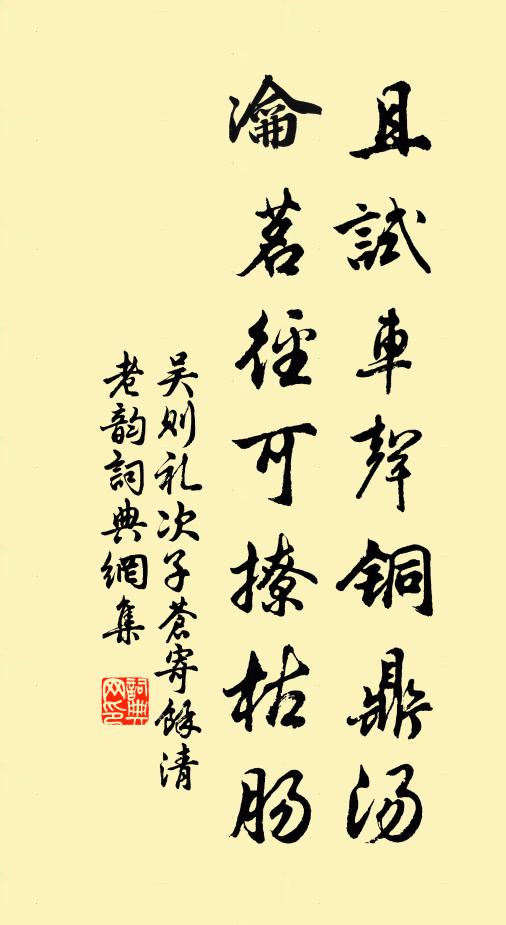 且試車聲銅鼎汤
瀹茗徑可撩枯肠
吴则礼次子蒼寄馀清
老韵詞典網集
詞典
网印